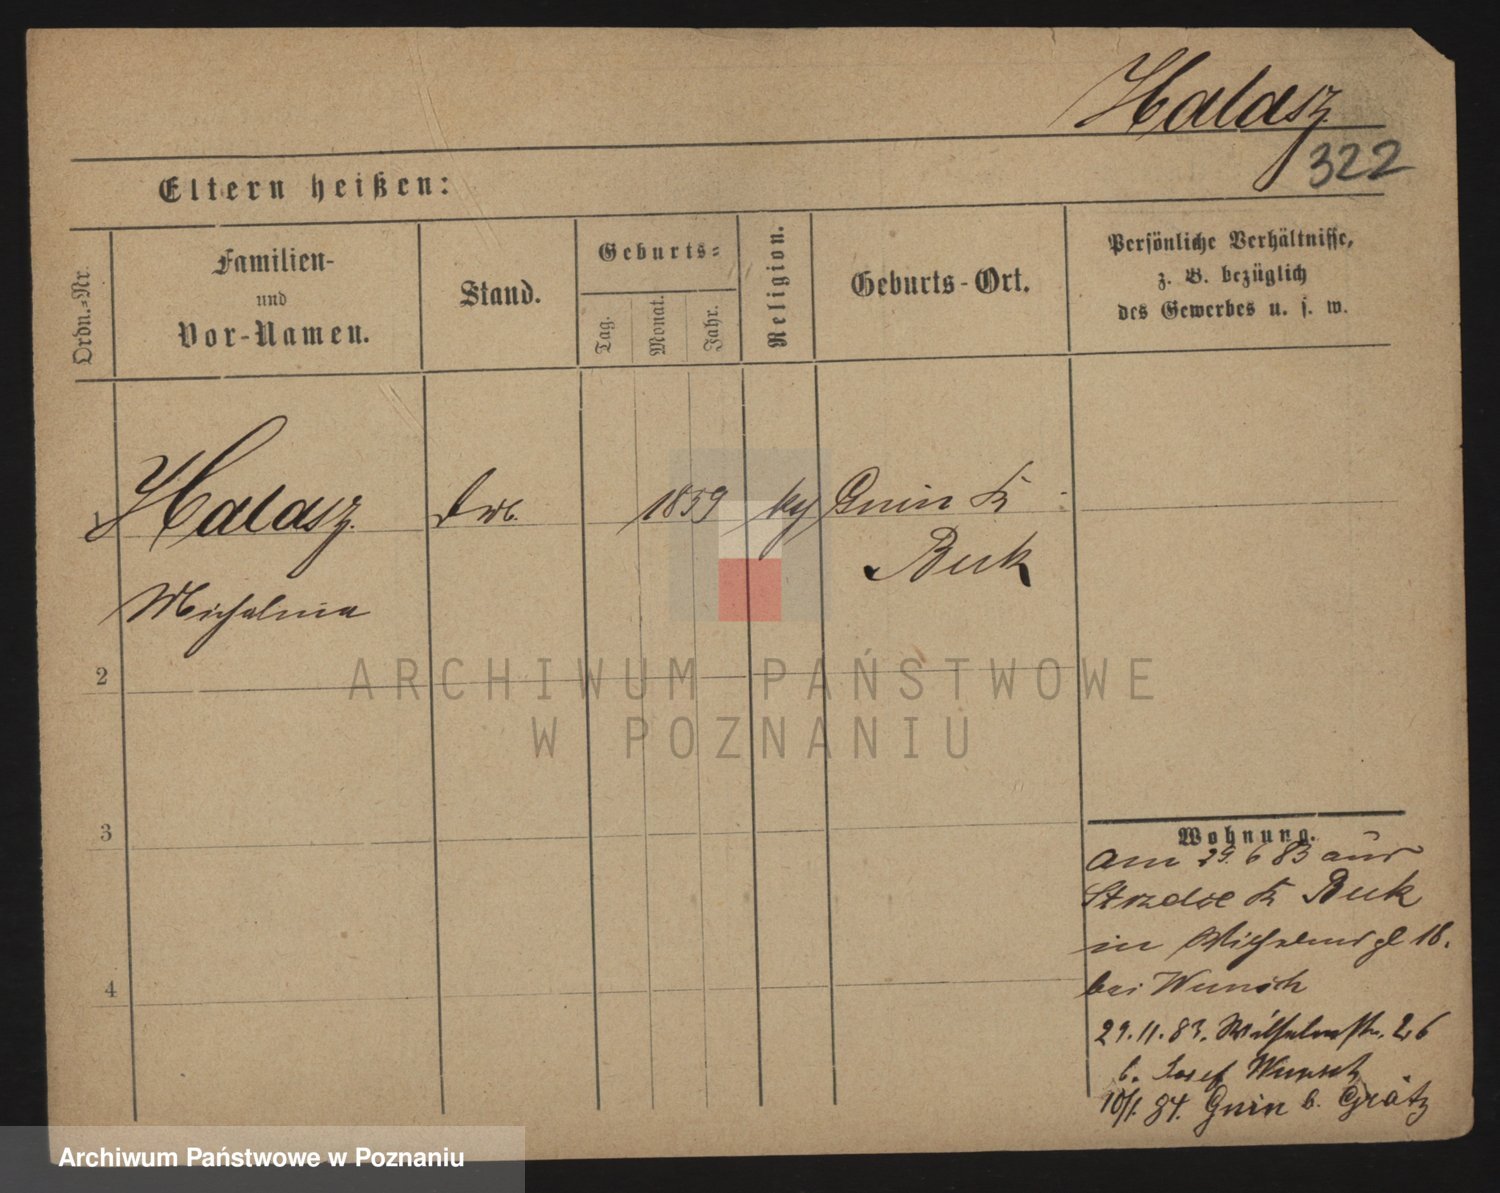 Halasz
322
Eltern heißen:
Ordn.-Nr.
Familien-
und
Vor-Namen.
Stand.
Geburts-
Tag.
Monat.
Jahr.
Religion.
Geburts-Ort.
Persönliche Verhältnisse,
z. B. bezüglich
des Gewerbes u. s. w.
1 Halasz 1859 Gnin K
Buk
Michalina
2
3
4
Wohnung.
am 29. 6 83 aus
K Buk
in 18.
bei Wunsch
29.11.83. Wilhelmstr. 26
b. Josef Wunsch
10/1. 84. Gnin b. Grätz
ARCHIWUM PAŃSTWOWE
W POZNANIU
Archiwum Państwowe w Poznaniu